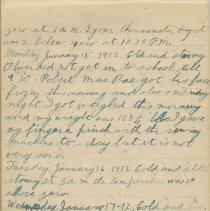 zero at 1 a.m. Ryan's thermometer
was below zero at 10.30 P.M.
Monday January 15 1912 Cold and stormy
Oliver did not get in to school till
9.30. Robert MacRae got his face
froze this morning and also on Friday
night I got weighed this morning
and my weight was 103½ lbs I gave
my finger a pinch with the sewing
machine to-day but it is not
very sore.
Tuesday January 16-1912 Cold and
stormy at 8 a m the temperature was
above zero
Wednesday January 17-12 Cold and